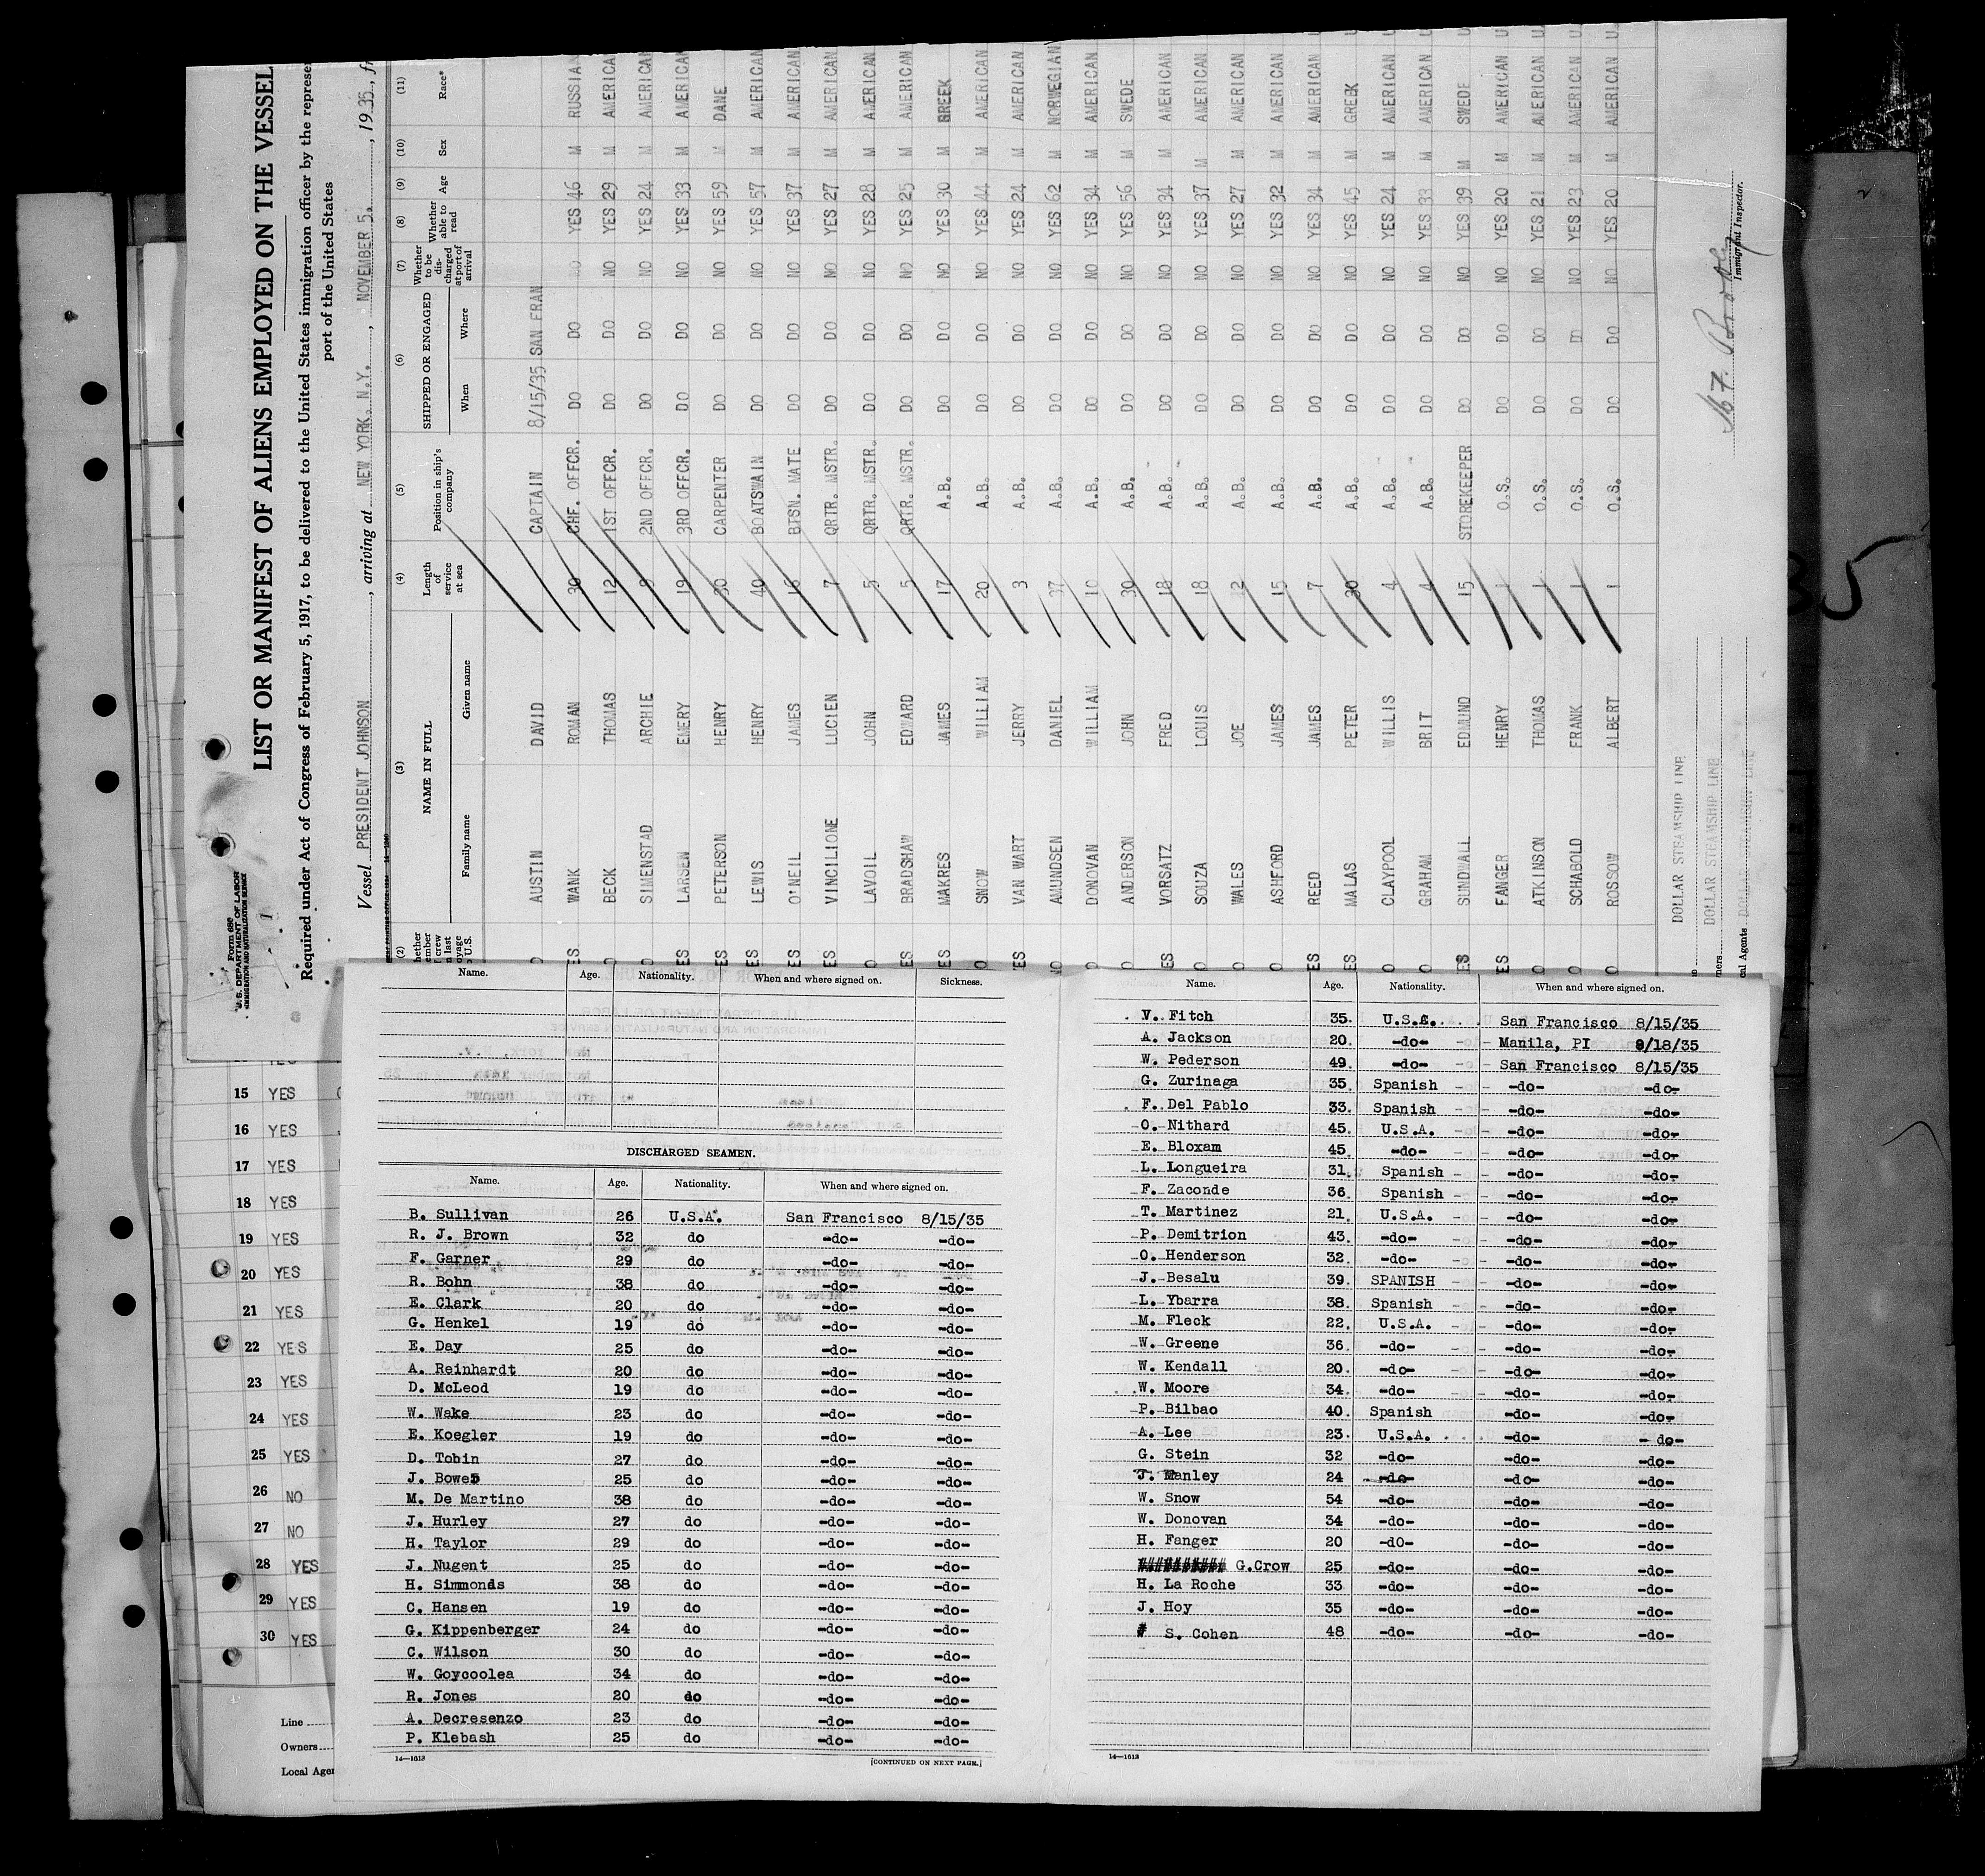 Form 689
U. S. DEPARTMENT OF LABOR
IMMIGRATION AND NATURALIZATION SERVICE
1
LIST OR MANIFEST OF ALIENS EMPLOYED ON THE VESSEL
Required under Act of Congress of February 5, 1917, to be delivered to the United States immigration officer by the represe
port of the United States
Vessel PRESIDENT JOHNSON, arriving at NEW YORK. N.Y., NOVEMBER 5., 1935, fr
(2) (3) (4) (5) (6) (7) (8) (9) (10) (11)
NAME IN FULL Length of service at sea Position in ship's company SHIPPED OR ENGAGED Whether to be discharged at port of arrival Whether able to read Age Sex Race*
Family name Given name When Where
AUSTIN DAVID CAPTAIN 8/15/35 SAN FRAN
ES WANK ROMAN 30 CHF. OFFCR. DO DO NO YES 46 M RUSSIAN
BECK THOMAS 12 1ST OFFCR. DO DO NO YES 29 M AMERICA
O SIMENSTAD ARCHIE 8 2ND OFFCR. DO DO NO YES 24 M AMERICAN
ES LARSEN EMERY 19 3RD OFFCR. DO DO NO YES 33 M AMERICAN
ES PETERSON HENRY 30 CARPENTER DO DO NO YES 59 M DANE
ES LEWIS HENRY 40 BOATSWAIN DO DO NO YES 57 M AMERICAN
ES O'NEIL JAMES 16 BTSN. MATE DO DO NO YES 37 M AMERICAN
ES VINCILIONE LUCIEN 7 QRTR. MSTR. DO DO NO YES 27 M AMERICAN
O LAVOIL JOHN 5 QRTR. MSTR. DO DO NO YES 28 M AMERICAN
ES BRADSHAW EDWARD 5 QRTR. MSTR. DO DO NO YES 25 M AMERICAN
ES MAKRES JAMES 17 A.B. DO DO NO YES 30 M GREEK
O SNOW WILLIAM 20 A.B. DO DO NO YES 44 M AMERICAN
YES VAN WART JERRY 3 A.B. DO DO NO YES 24 M AMERICAN
NO AMUNDSEN DANIEL 37 A.B. DO DO NO YES 62 M NORWEGIAN
O DONOVAN WILLIAM 10 A.B. DO DO NO YES 34 M AMERICAN
O ANDERSON JOHN 30 A.B. DO DO NO YES 56 M SWEDE
ES VORSATZ FRED 18 A.B. DO DO NO YES 34 M AMERICAN
O SOUZA LOUIS 18 A.B. DO DO NO YES 37 M AMERICAN
O WALES JOE 12 A.B. DO DO NO YES 27 M AMERICAN
O ASHFORD JAMES 15 A.B. DO DO NO YES 32 M AMERICAN
ES REED JAMES 7 A.B. DO DO NO YES 34 M AMERICAN
ES MALAS PETER 30 A.B. DO DO NO YES 45 M GREEK
O CLAYPOOL WILLIS 4 A.B. DO DO NO YES 24 M AMERICAN U
O GRAHAM BRIT 4 A.B. DO DO NO YES 33 M AMERICAN U
ES SUNDWALL EDMUND 15 STOREKEEPER DO DO NO YES 39 M SWEDE U
ES FANGER HENRY 1 O.S. DO DO NO YES 20 M AMERICAN U
O ATKINSON THOMAS 1 O.S. DO DO NO YES 21 M AMERICAN U
O SCHABOLD FRANK 1 O.S. DO DO NO YES 23 M AMERICAN U
O ROSSOW ALBERT 1 O.S. DO DO NO YES 20 M AMERICAN U
DOLLAR STEAMSHIP LINE
DOLLAR STEAMSHIP LINE
cal Agents
Immigrant Inspector.
35
15 YES
16 YES
17 YES
18 YES
19 YES
20 YES
21 YES
22 YES
23 YES
24 YES
25 YES
26 NO
27 NO
28 YES
29 YES
30 YES
Line
Owners
Local Agen
Name. Age. Nationality. When and where signed on. Sickness.
DISCHARGED SEAMEN.
Name. Age. Nationality. When and where signed on.
B. Sullivan 26 U.S.A. San Francisco 8/15/35
R. J. Brown 32 do -do- -do-
F. Garner 29 do -do- -do-
R. Bohn 38 do -do- -do-
E. Clark 20 do -do- -do-
G. Henkel 19 do -do- -do-
E. Day 25 do -do- -do-
A. Reinhardt 20 do -do- -do-
D. McLeod 19 do -do- -do-
W. Wake 23 do -do- -do-
E. Koegler 19 do -do- -do-
D. Tobin 27 do -do- -do-
J. Bowes 25 do -do- -do-
M. De Martino 38 do -do- -do-
J. Hurley 27 do -do- -do-
H. Taylor 29 do -do- -do-
J. Nugent 25 do -do- -do-
H. Simmonds 38 do -do- -do-
C. Hansen 19 do -do- -do-
G. Kippenberger 24 do -do- -do-
C. Wilson 30 do -do- -do-
W. Goycoolea 34 do -do- -do-
R. Jones 20 do -do- -do-
A. Decresenzo 23 do -do- -do-
P. Klebash 25 do -do- -do-
14—1613 [CONTINUED ON NEXT PAGE.]
Name. Age. Nationality. When and where signed on.
V. Fitch 35. U.S.A. San Francisco 8/15/35
A. Jackson 20. -do- Manila, PI 9/18/35
W. Pederson 49 -do- San Francisco 8/15/35
G. Zurinaga 35 Spanish -do- -do-
F. Del Pablo 33. Spanish -do- -do-
O. Nithard 45. U.S.A. -do- -do-
E. Bloxam 45. -do- -do- -do-
L. Longueira 31. Spanish -do- -do-
F. Zaconde 36. Spanish -do- -do-
T. Martinez 21. U.S.A. -do- -do-
P. Demitrion 43. -do- -do- -do-
O. Henderson 32. -do- -do- -do-
J. Besalu 39. SPANISH -do- -do-
L. Ybarra 38. Spanish -do- -do-
M. Fleck 22. U.S.A. -do- -do-
W. Greene 36. -do- -do- -do-
W. Kendall 20. -do- -do- -do-
W. Moore 34. -do- -do- -do-
P. Bilbao 40. Spanish -do- -do-
A. Lee 23. U.S.A. -do- - do-
G. Stein 32 -do- -do- -do-
J. Manley 24 -do- -do- -do-
W. Snow 54 -do- -do- -do-
W. Donovan 34 -do- -do- -do-
H. Fanger 20 -dO- -do- -do-
########## G.Crow 25 -do- -do- -do-
H. La Roche 33 -do- -do- -do-
J. Hoy 35 -do- -do- -do-
# S. Cohen 48 -do- -do- -do-
14—1613